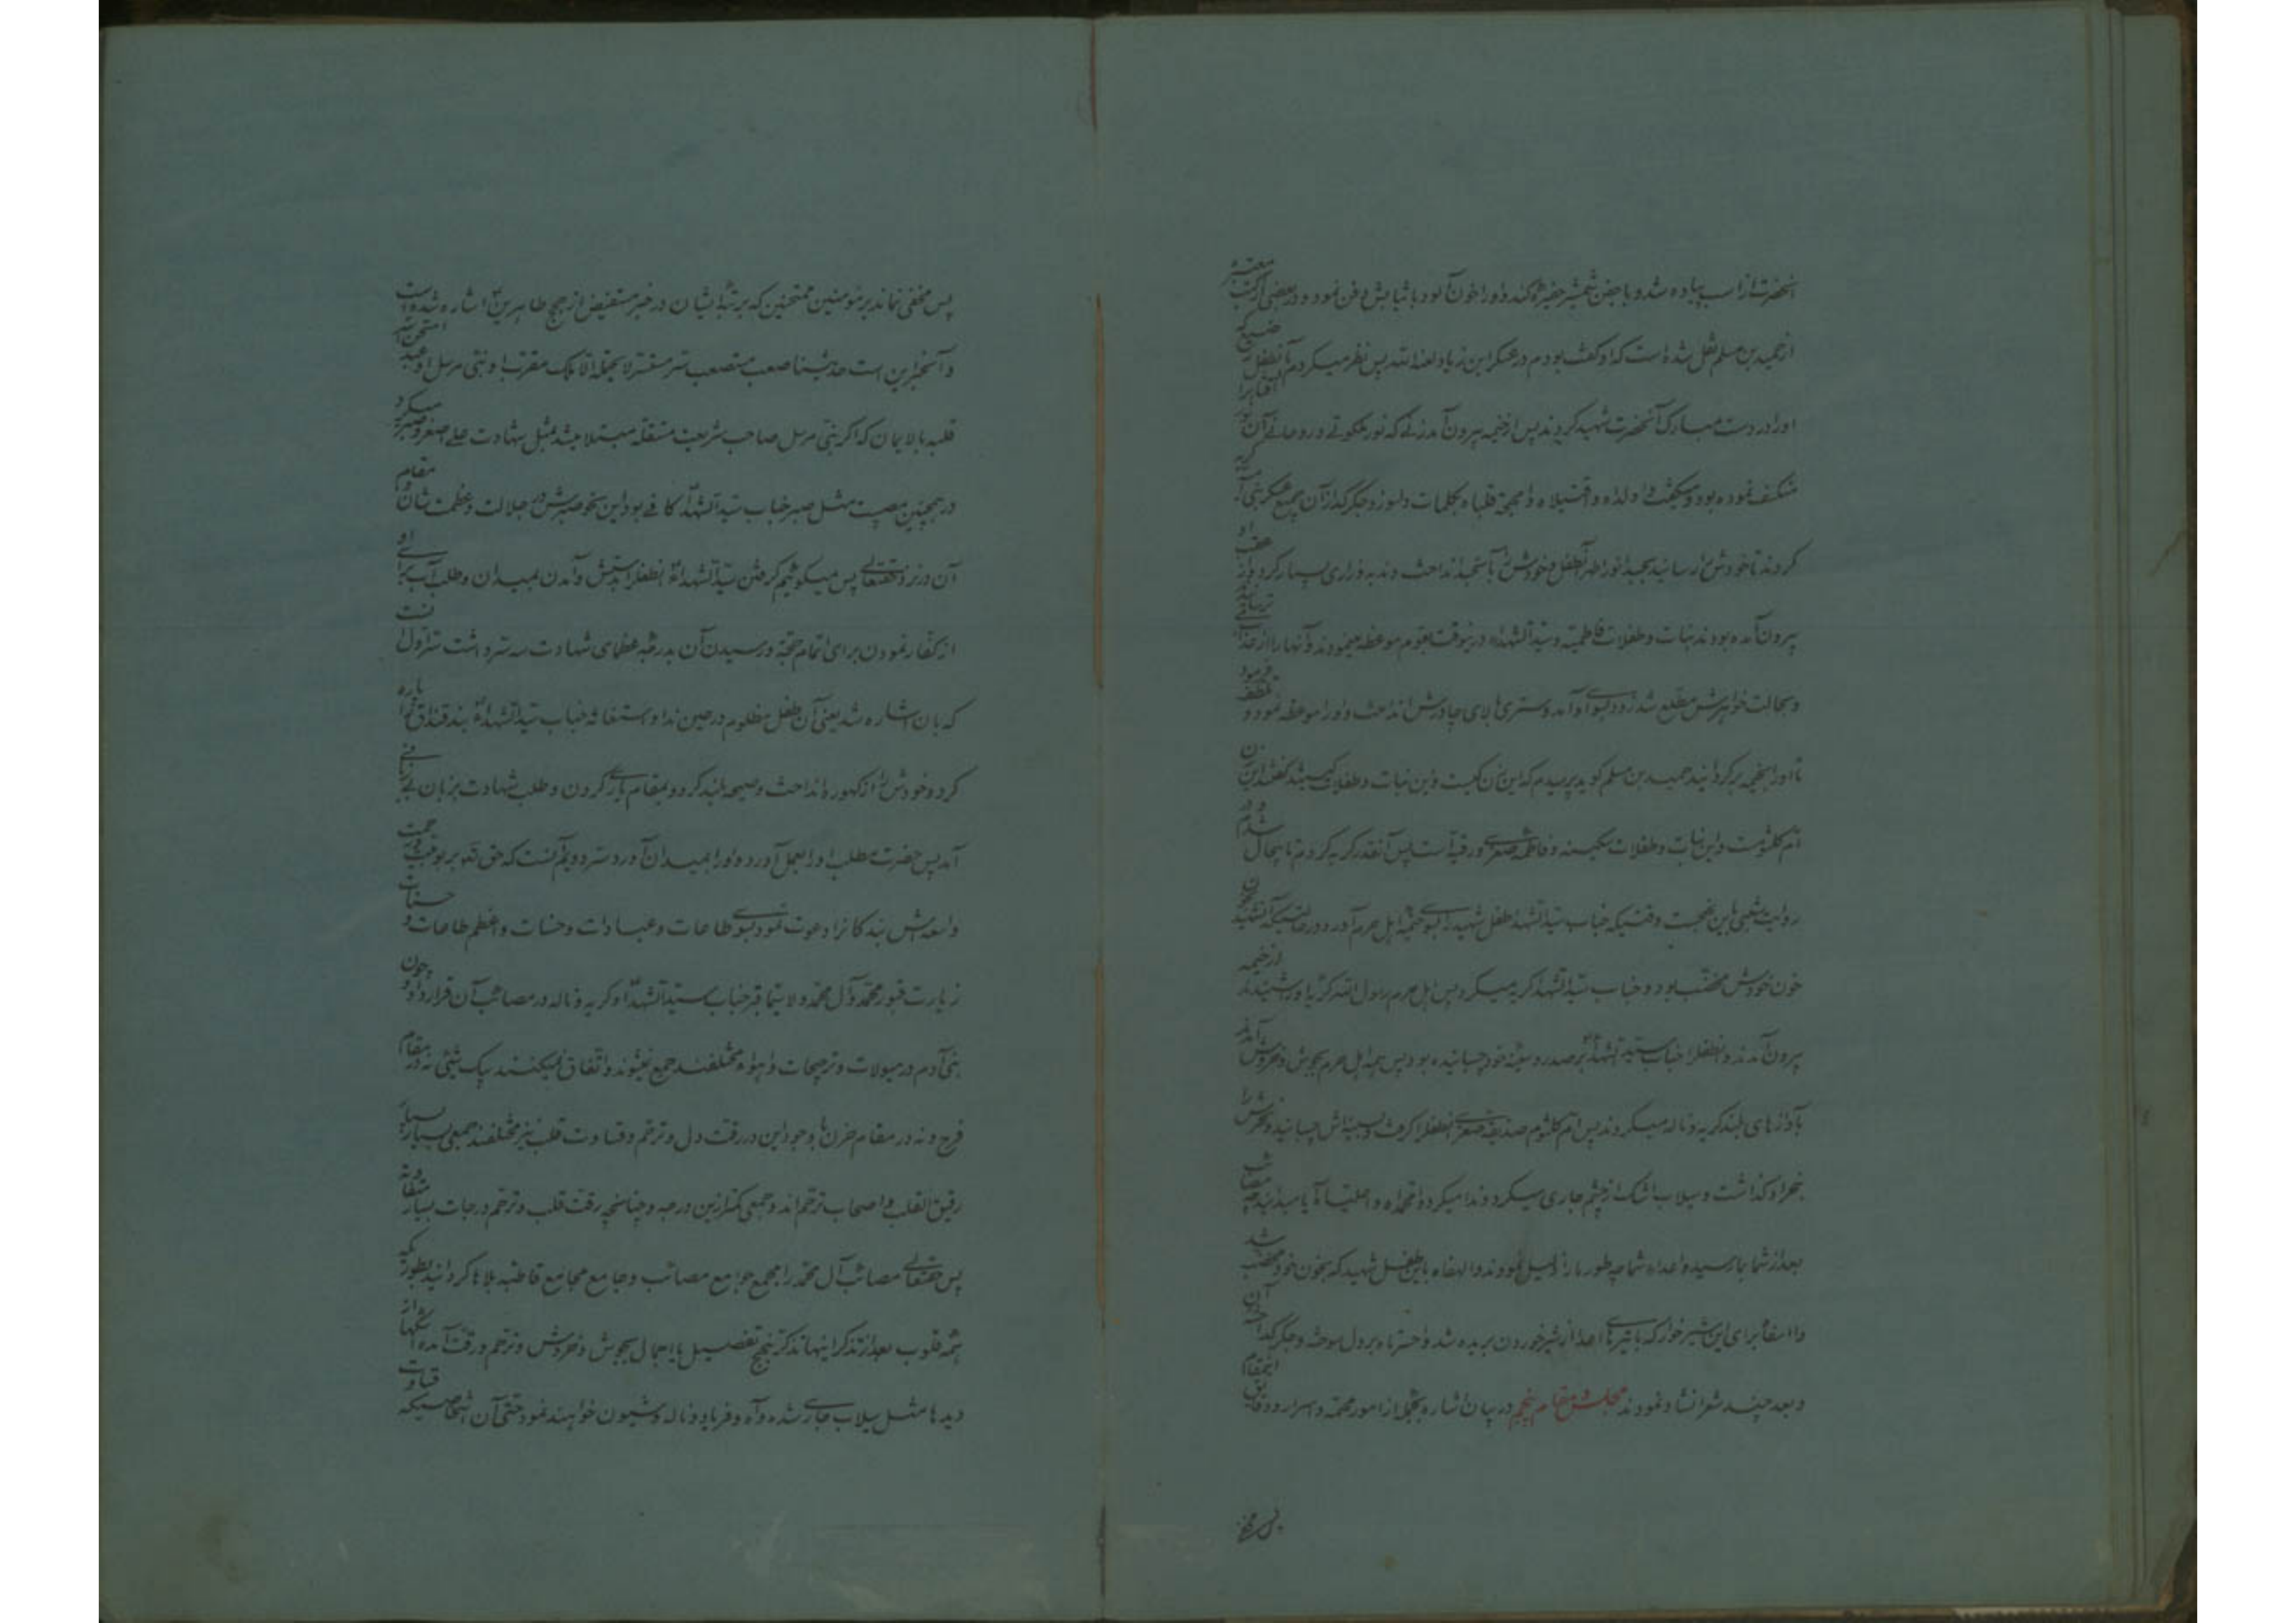 آنحضرت از اسب پیاده شد و با جفن شمشیر حفیره کند و او را خون آلود با ثیابش دفن نمود و در بعضی از کتب معتبره
از حمید بن مسلم نقل شده است که او گفت بودم در عسکر ابن زیاد لعنه الله پس نظر میکردم بآنطفل صغیریکه
او را در دست مبارک آنحضرت شهید کردند پس از خیمه بیرون آمد زنی که نور ملکوتی و روحانی آن نور آفتابرا
منکسف نموده بود و میگفت وا ولداه وا قتیلاه وا مهجة قلباه بکلمات دلسوز و جگرگداز آن جمیع عسکر بنی امیه گریه
کردند تا خودش را رسانید بجسد انور اطهر آنطفل و خودش را بآنجسد انداخت و ندبه و زاری بسیار کرد و از عقب او
بیرون آمده بودند بنات و طفلات فاطمیه و سید الشهداء در آنوقت بقوم موعظه مینمودند و آنها را از عذاب میترسانید
و بحالت خواهرش مطلع شد زود بسوی او آمد و ستری بالای چادرش انداخت و او را موعظه نمود و تلطف فرمود
تا او را بخیمه برگردانید حمید بن مسلم گوید پرسیدم که این زن کیست و این بنات و طفلات کیستند گفتند این زن
ام کلثومست و این بنات و طفلات سکینه و فاطمه صغری و رقیه است پس آنقدر گریه کردم تا بیحال شدم و در
روایت شعبی باین نهجست وقتیکه جناب سید الشهدا طفل شهید را بسوی خیمه اهل حرم آورد در حالتیکه آنشهید بخون
خون خودش مخضب بود و جناب سید الشهدا گریه میکرد پس اهل حرم رسول الله گریه او را شنیدند از خیمه
بیرون آمدند و آنطفلرا جناب سید الشهداء بر صدر و سینه خود چسبانیده بود پس همه اهل حرم بجوش و خروش آمدند
بآوازهای بلند گریه و ناله میکردند پس ام کلثوم صدیقه صغری آنطفلرا گرفت و بسینه‌اش چسبانید و نحرش را
بنحر او گذاشت و سیلاب اشک از چشم جاری میکرد و ندا میکرد وا محمداه وا علیاه آیا میدانید چه مصائب
بعد از شما بما رسیده و اعداء شما چطور ما را ذلیل نمودند وا لهفاه باین طفل شهید که بخون خود مخضب شد
وا اسفا برای این شیرخوار که با تیرهای اعدا از شیر خوردن بریده شد وا حسرتاه بر دل سوخته و جگر گداخته آن
و بعد چند شعر انشاد نمودند مجلس و مقام پنجم در بیان اشاره بجمله از امور مهمه و اسرار و دقایق اینمقام
پس مخفی
پس مخفی نماند بر مؤمنین ممتحنین که برتبه ایشان در خبر مستفیض از حجج طاهرین اشاره شده است
و آنخبر این است حدیثنا صعب مستصعب سر مستتر لا یحتمله الا ملک مقرب او نبی مرسل او عبد امتحن الله
قلبه بالایمان که اگر نبی مرسل صاحب شریعت مستقله مبتلا میشد بمثل شهادت علی اصغر و صبر میکرد
در همچنین مصیبت مثل صبر جناب سید الشهداء کافی بود این نحو صبرش در جلالت و عظمت شان و مقام
آن در نزد حقتعالی پس میگوئیم گرفتن سید الشهداء آنطفلرا بدستش و آمدن بمیدان و طلب آب برای او
از کفار نمودن برای اتمام حجة و رسیدن آن بدرجه عظمای شهادت سه سر داشت سر اول آنست
که بآن اشاره شد یعنی آن طفل مظلوم در حین ندا و استغاثه جناب سید الشهداء بند قنداق خود را پاره
کرد و خودش را از گهواره انداخت و صیحه بلند کرد و بمقام یاری کردن و طلب شهادت بزبان بی زبانی
آمد پس حضرت مطلب او را بعمل آورده او را بمیدان آورد و سر دویم آنست که حق تعالی بر بوبیت و رحمت
واسعه‌اش بندگانرا دعوت نمود بسوی طاعات و عبادات و حسنات و اعظم طاعات و حسنات
زیارت قبور محمد و آل محمد و لا سیما قبر جناب سید الشهداء و گریه و ناله در مصائب آن قرار داد و چون
بنی آدم در میولات و ترجیحات و اهواء مختلفند جمع نمیشوند و اتفاق نمیکنند بیک شیئی نه در مقام
فرح و نه در مقام حزن با وجود این در رقت دل و ترحم و قساوت قلب نیز مختلفند جمعی بسیار
رقیق القلب و اصحاب ترحم‌اند و جمعی کمتر ازین درجه و چنانچه رقت قلب و ترحم درجات بسیار
پس حقتعالی مصائب آل محمد را مجمع جوامع مصائب و جامع مجامع قاطبه بلاها گردانید بطوریکه
همه قلوب بعد از تذکر اینها تذکر بنهج تفصیل یا اجمال بجوش و خروش و ترحم و رقت آمده
دیدها مثل سیلاب جاری شده و آه و فریاد و ناله و شیون خواهند نمود حتی آن اشخاصیکه قساوت